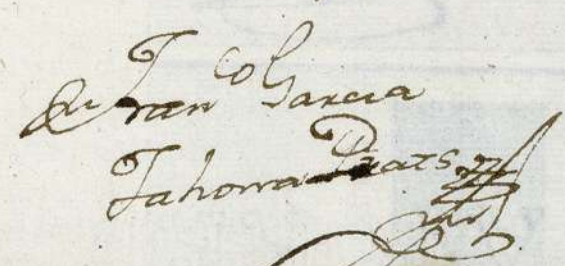 Franco Garcia
Tahona Prats